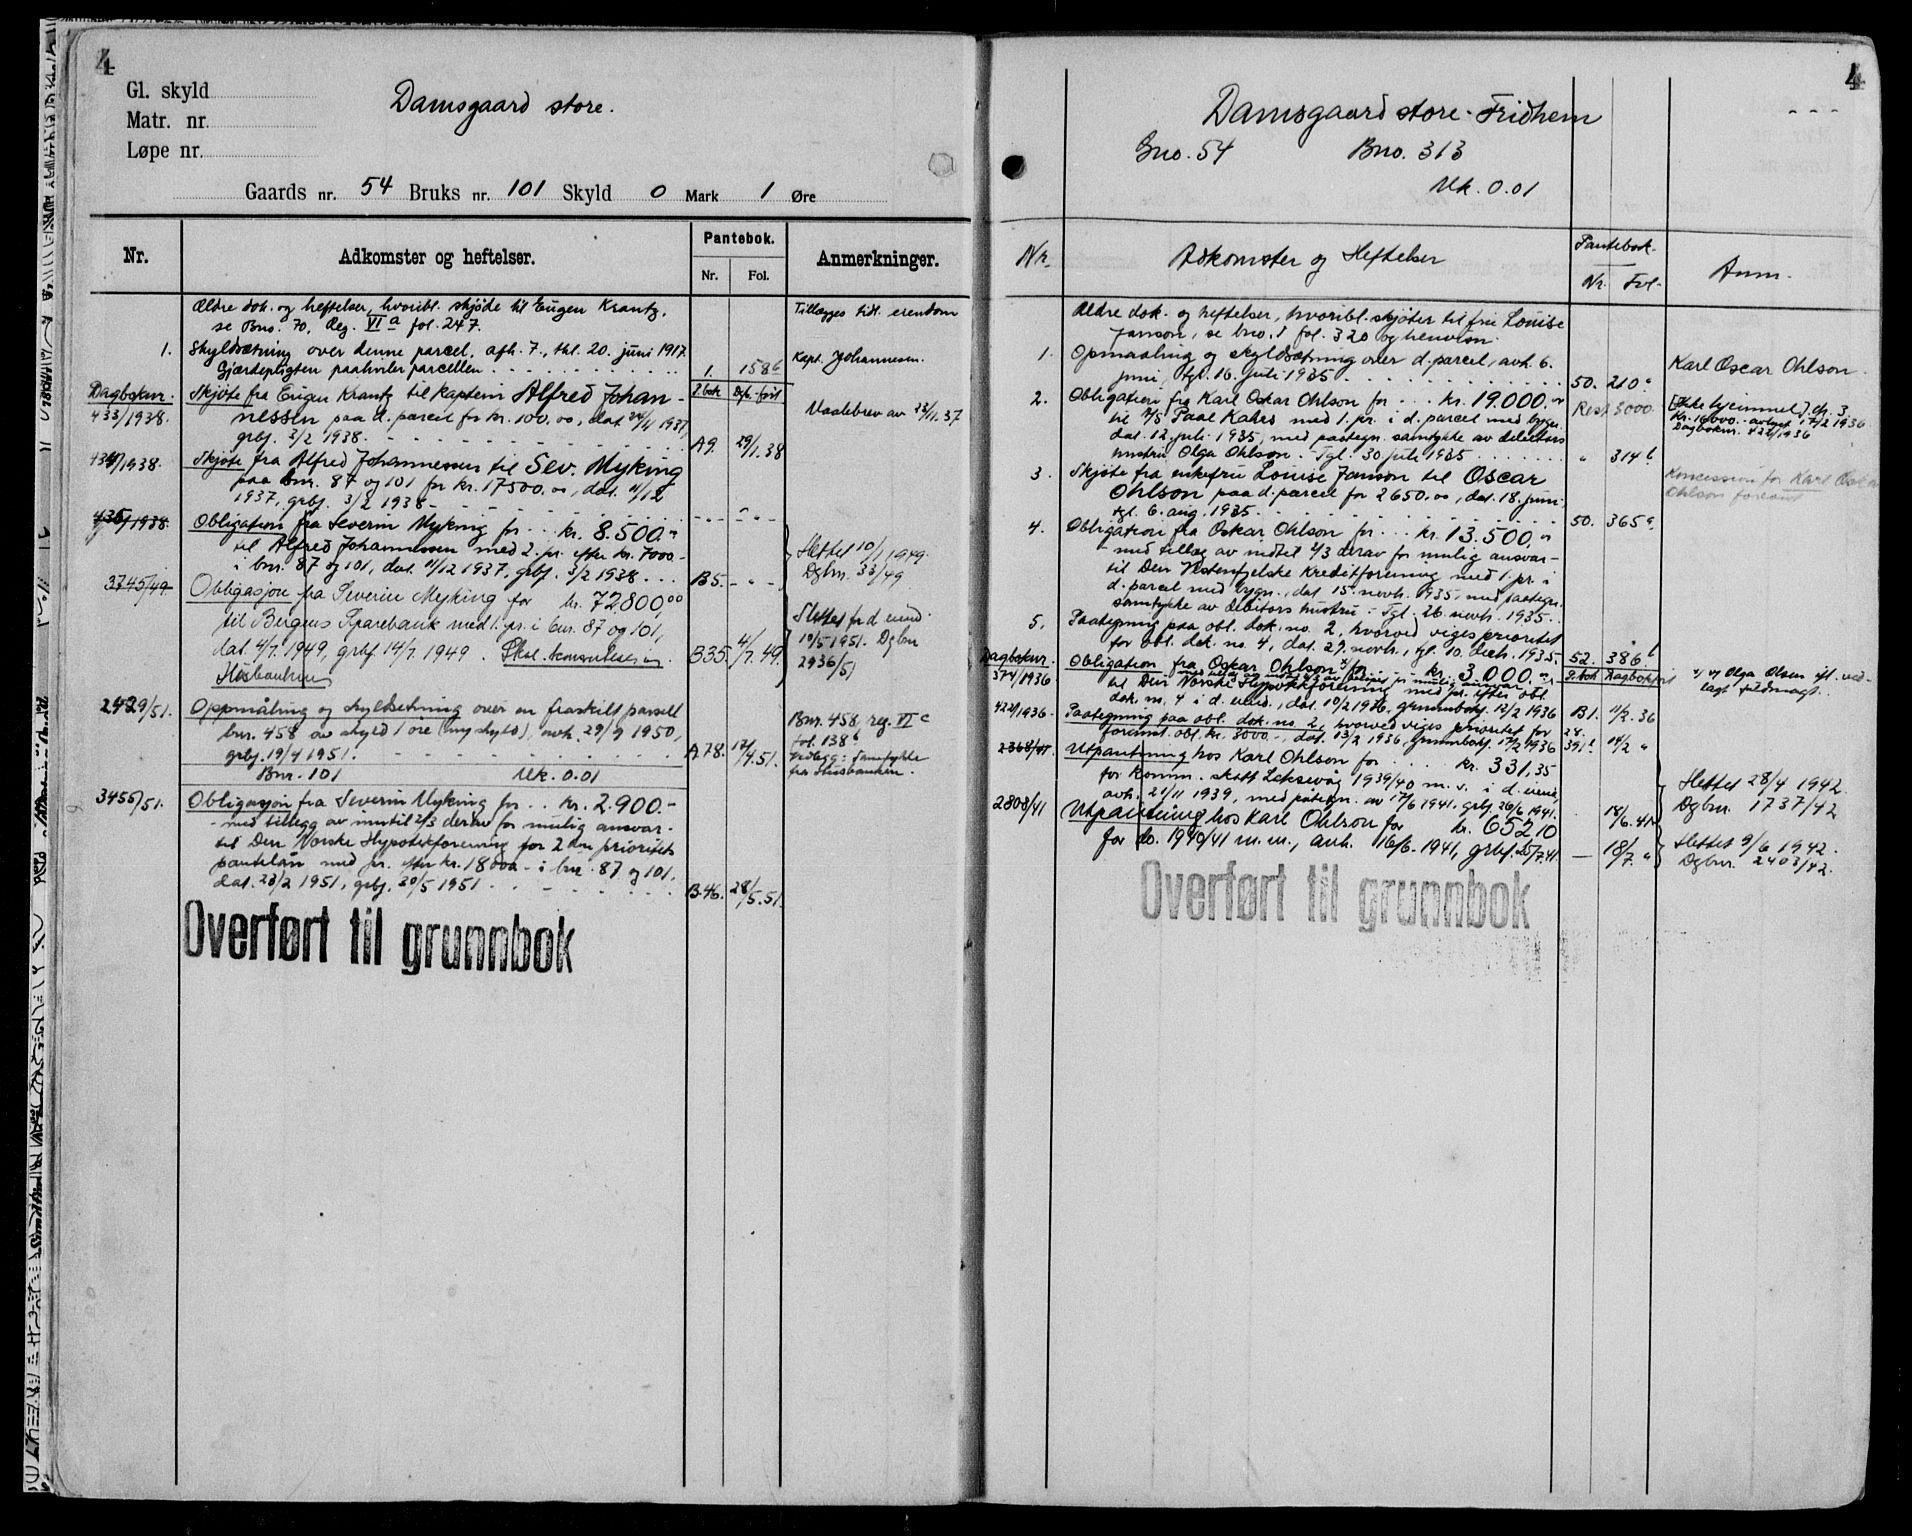 4
Gl. skyld
Matr. nr.
Løpe nr.
Damsgaard store.
Gaards nr. 54 Bruks nr. 101 Skyld 0 Mark 1 Øre
Nr. Adkomster og heftelser. Pantebok. Anmerkninger.
Nr. Fol.
Ældre dok. og heftelser, hvoribl. skjøde til Eugen Krantz, Tillægges tidl. eiendom
se Bno. 70, Reg. VI a fol. 247.
1. Skyldsætning over denne parcel, afh. 7., thl. 20. juni 1917. Kapt. Johannesen.
Gjærdepligten paahviler parcellen 1. 158 b
Dagboknr. Skjøte fra Eugen Krantz til kaptein Alfred Johan- P.bok Dgb.-ført
433/1938. nessen paa d. parcel for kr. 100.00, dat. 24/11 1937, Maalebrev av 23/11.37
grbf. 3/2 1938. A9. 29/1.38
434/1938. Skjøte fra Alfred Johannessen til Sev. Myking
paa bnr. 87 og 101 for kr. 17500.00, dat. 11/12
1937, grbf. 3/2 1938
435/1938. Obligation fra Severin Myking for kr. 8.500.-
til Alfred Johannessen med 2. pr. efter kr. 7000.- Slettet 10/1 1949.
i bnr. 87 og 101, dat. 11/12 1937, grbf. 3/2 1938 B5. Dgbnr. 33/49
3745/49 Obligasjon fra Severin Myking for kr. 72800,00
til Bergens Sparebank med 1. pr. i bnr. 87 og 101, Slettet fr d. eiend.
dat. 4/7. 1949, grbf. 14/7. 1949. B35. 4/7.49. 10/5 1951. Dgbnr
Husbanken 2936/51
2429/51. Oppmåling og skyldsetning over en fraskilt parsell Bnr. 458, reg. VI c
bnr. 458 av skyld 1 øre (ny skyld), avh. 29/9 1950, fol. 138 b
grbf. 19/4 1951. A78. 17/4.51. Vedlegg: Samtykke
Bnr. 101 Mk. 0.01 fra Husbanken.
3455/51. Obligasjon fra Severin Myking for kr. 2.900.-
- med tillegg av inntil 2/3 derav for mulig ansvar -
til Den Norske Hypotekforening for 2dre prioritets
pantelån med pr. efter kr. 18000.- i bnr. 87 og 101.
dat. 23/2 1951, grbf. 30/5 1951. B46. 28/5.51.
Overført til grunnbok
4
Damsgaard store - Fridhem
Gno. 54 Bno. 313
Mk. 0.01
Nr. Adkomster og Heftelser Pantebok. Anm.
Nr. Fol.
Ældre dok. og heftelser, hvoribl. skjøter til fru Louise
Janson, se bno. 1 fol. 320 og henvisn.
1. Opmaaling og skyldsætning over d. parcel, avh. 6.
juni, tgl. 16. juli 1935 50. 210 a Karl Oscar Ohlson.
2. Obligation fra Karl Oskar Ohlson for kr. 19.000.- Rest 3000. [Ikke hjemmel] cfr. 3
til A/S Paal Kahrs med 1. pr. i d. parcel med bygn. Kr. 16000.- avlyst 17/2 1936
dat. 12. juli 1935, med paategn. samtykke av debitors Dagboknr. 422/1936
hustru Olga Ohlson. Tgl. 30 juli 1935 " 314 b
3. Skjøte fra enkefru Louise Janson til Oscar Koncession for Karl Oscar
Ohlson paa d. parcel for 2650.00, dat. 18. juni, Ohlson
tgl. 6. aug. 1935. 50. 365 a
4. Obligation fra Oskar Ohlson for kr. 13.500.-
- med tillæg av indtil 2/3 derav for mulig ansvar -
til Den Vestenfjelske Kreditforening med 1. pr. i
d. parcel med bygn., dat. 15. novbr. 1935, med paategn.
samtykke av debitors hustru. - Tgl. 26. novbr. 1935.
5. Paategning paa obl. dok. no. 2, hvorved viges prioritet
for obl. dok. no. 4, dat. 29. novbr., tgl. 10. decbr. 1935. 52. 386 b
Dagboknr. Obligation fra Oskar Ohlson for kr. 3.000.- P.bok Dagbokført
374/1936 til Den Norske Hypothekforening med pr. efter obl. Olga Olsen ifl. ved-
dok. no. 4 i d. eiend., dat. 10/2 1936, grunnboksf. 12/2 1936 B1. 11/2.36 lagt fuldmagt.
422/1936. Paategning paa obl. dok. no. 2, hvorved viges prioritet for
foranst. obl. kr. 3000.-, dat. 13/2 1936, grunnboksf. 17/2 1936 28. 391 b 14/2 "
2368/41 Utpantning hos Karl Ohlson for kr. 331,35
for komm. skatt Laksevåg 1939/40 m. v. i d. eiend, Slettet 28/4 1942.
avh. 21/11 1939, med påtegn. av 17/6 1941. grbf. 26/6 1941. 18/6.41 Dgbnr. 1737/42
2808/41 Utpantning hos Karl Ohlson for kr. 652,10
for do. 1940/41 m.m., avh. 16/6-1941, grbf. 25/7.41 18/7. " Slettet 9/6 1942.
Dgbnr. 2403/42.
Overført til grunnbok